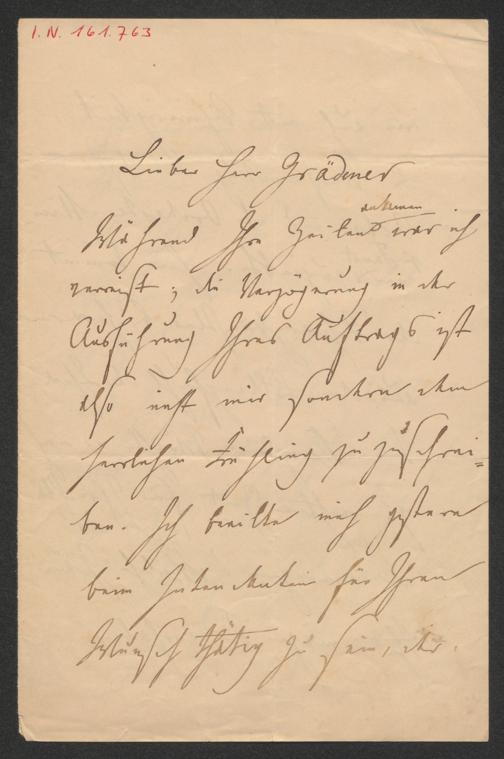 I. N. 161.763
Lieber Herr Grädener
Während Ihre Zeilen ankamen war ich
verreist; die Verzögerung in der
Ausführung Ihres Auftrags ist
also nicht mir sondern dem
herrlichen Frühling zu zuschrei=
ben. Ich beeilte mich gestern
beim Intendanten für Ihren
Wunsch thätig zu sein, der